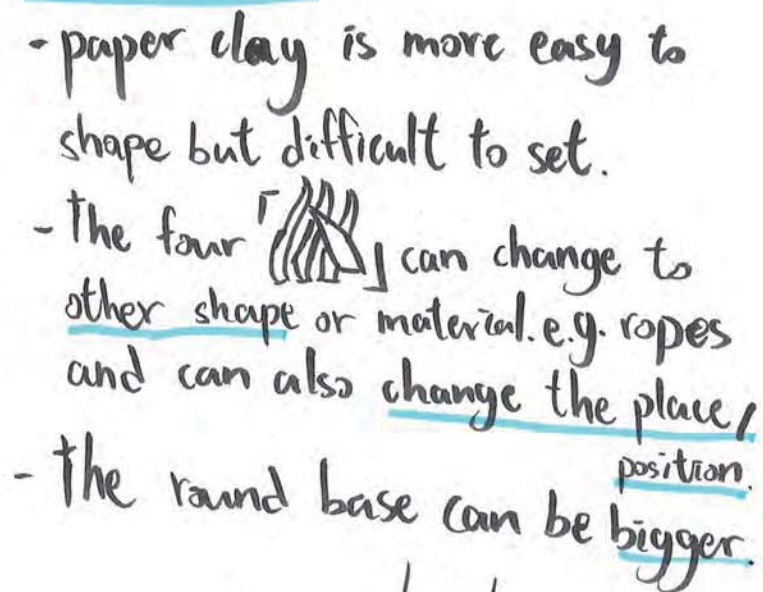 - paper clay is more easy to
shape but difficult to set.
- The four 「 」 can change to
other shape or material. e.g. ropes
and can also change the place/
position.
- The round base can be bigger.